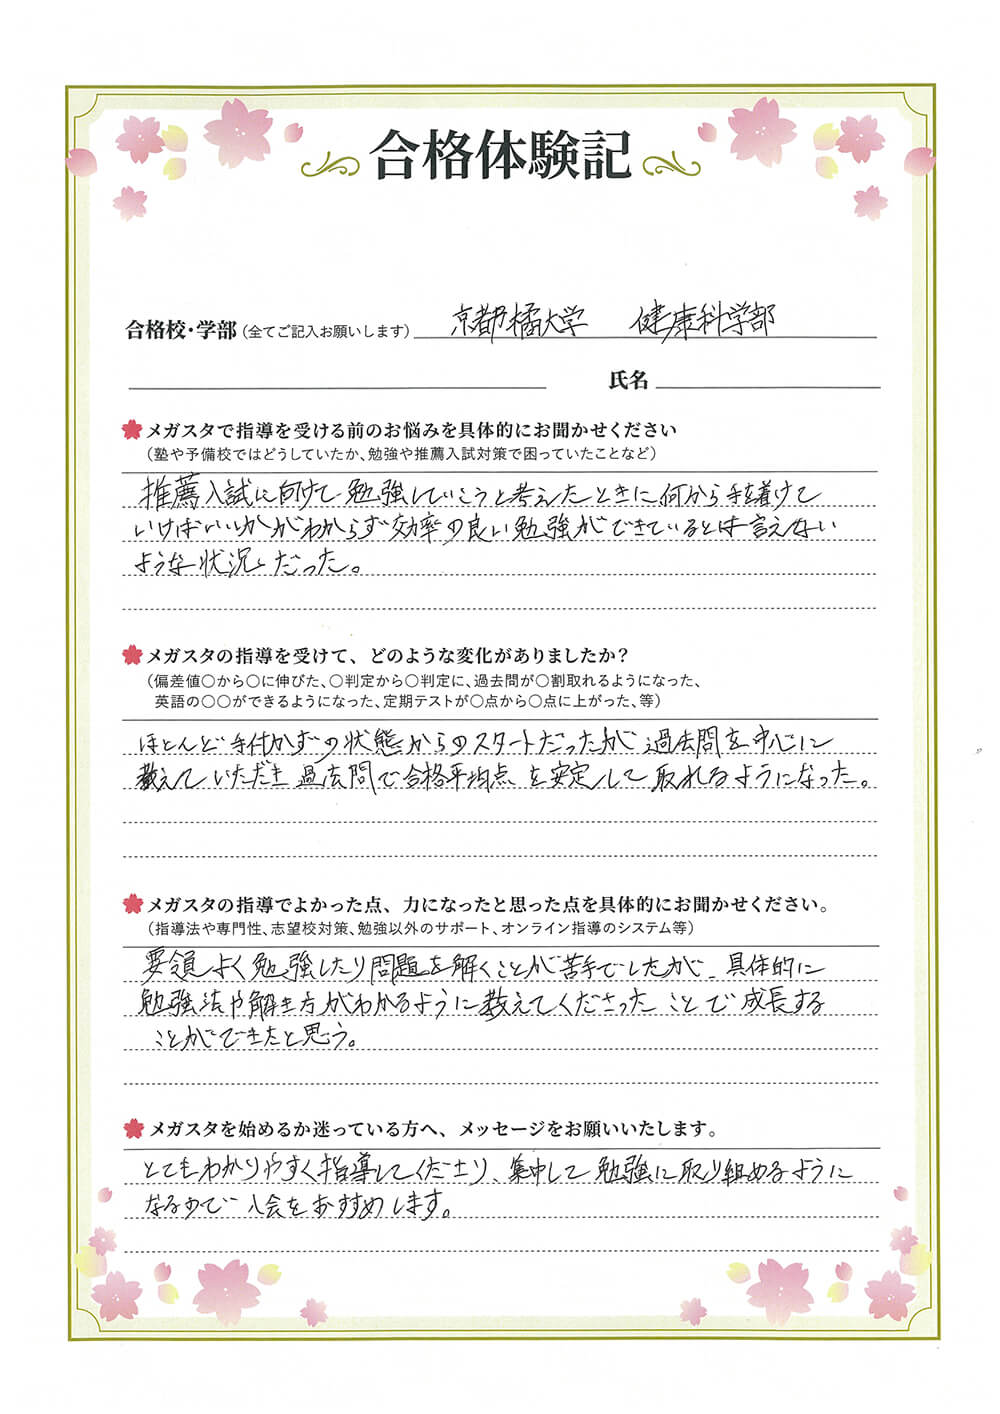 合格体験記
合格校・学部（全てご記入お願いします） 京都橘大学 健康科学部
氏名
メガスタで指導を受ける前のお悩みを具体的にお聞かせください
（塾や予備校ではどうしていたか、勉強や推薦入試対策で困っていたことなど）
推薦入試に向けて勉強していこうと考えたときに何から手を着けて
いけばいいかがわからず効率の良い勉強ができているとは言えない
ような状況だった。
メガスタの指導を受けて、どのような変化がありましたか？
（偏差値〇から〇に伸びた、〇判定から〇判定に、過去問が〇割取れるようになった、
英語の〇〇ができるようになった、定期テストが〇点から〇点に上がった、等）
ほとんど手付かずの状態からのスタートだったが過去問を中心に
教えていただき過去問で合格平均点を安定して取れるようになった。
メガスタの指導でよかった点、力になったと思った点を具体的にお聞かせください。
（指導法や専門性、志望校対策、勉強以外のサポート、オンライン指導のシステム等）
要領よく勉強したり問題を解くことが苦手でしたが、具体的に
勉強法や解き方がわかるように教えてくださったことで成長する
ことができたと思う。
メガスタを始めるか迷っている方へ、メッセージをお願いいたします。
とてもわかりやすく指導してくださり、集中して勉強に取り組めるように
なるので入会をおすすめします。